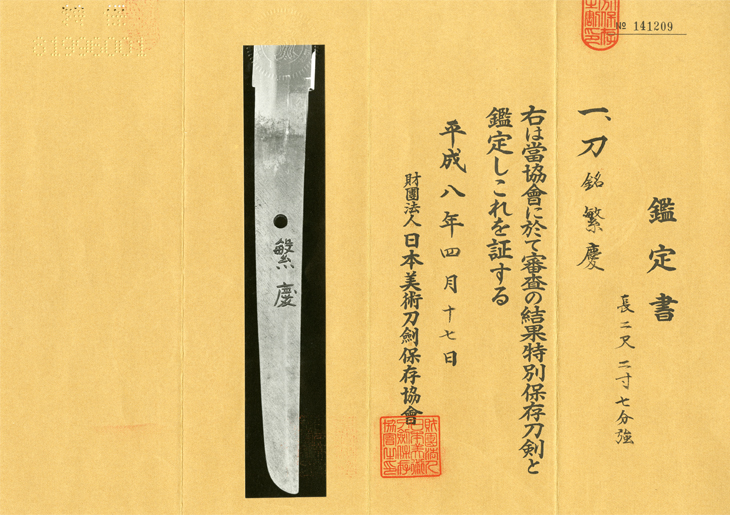 № 141209
鑑定書
一、刀 銘 繁慶
長二尺二寸七分強
右は當協會に於て審査の結果特別保存刀剣と
鑑定しこれを証する
平成八年四月十七日
財團法人日本美術刀劍保存協會
繁慶